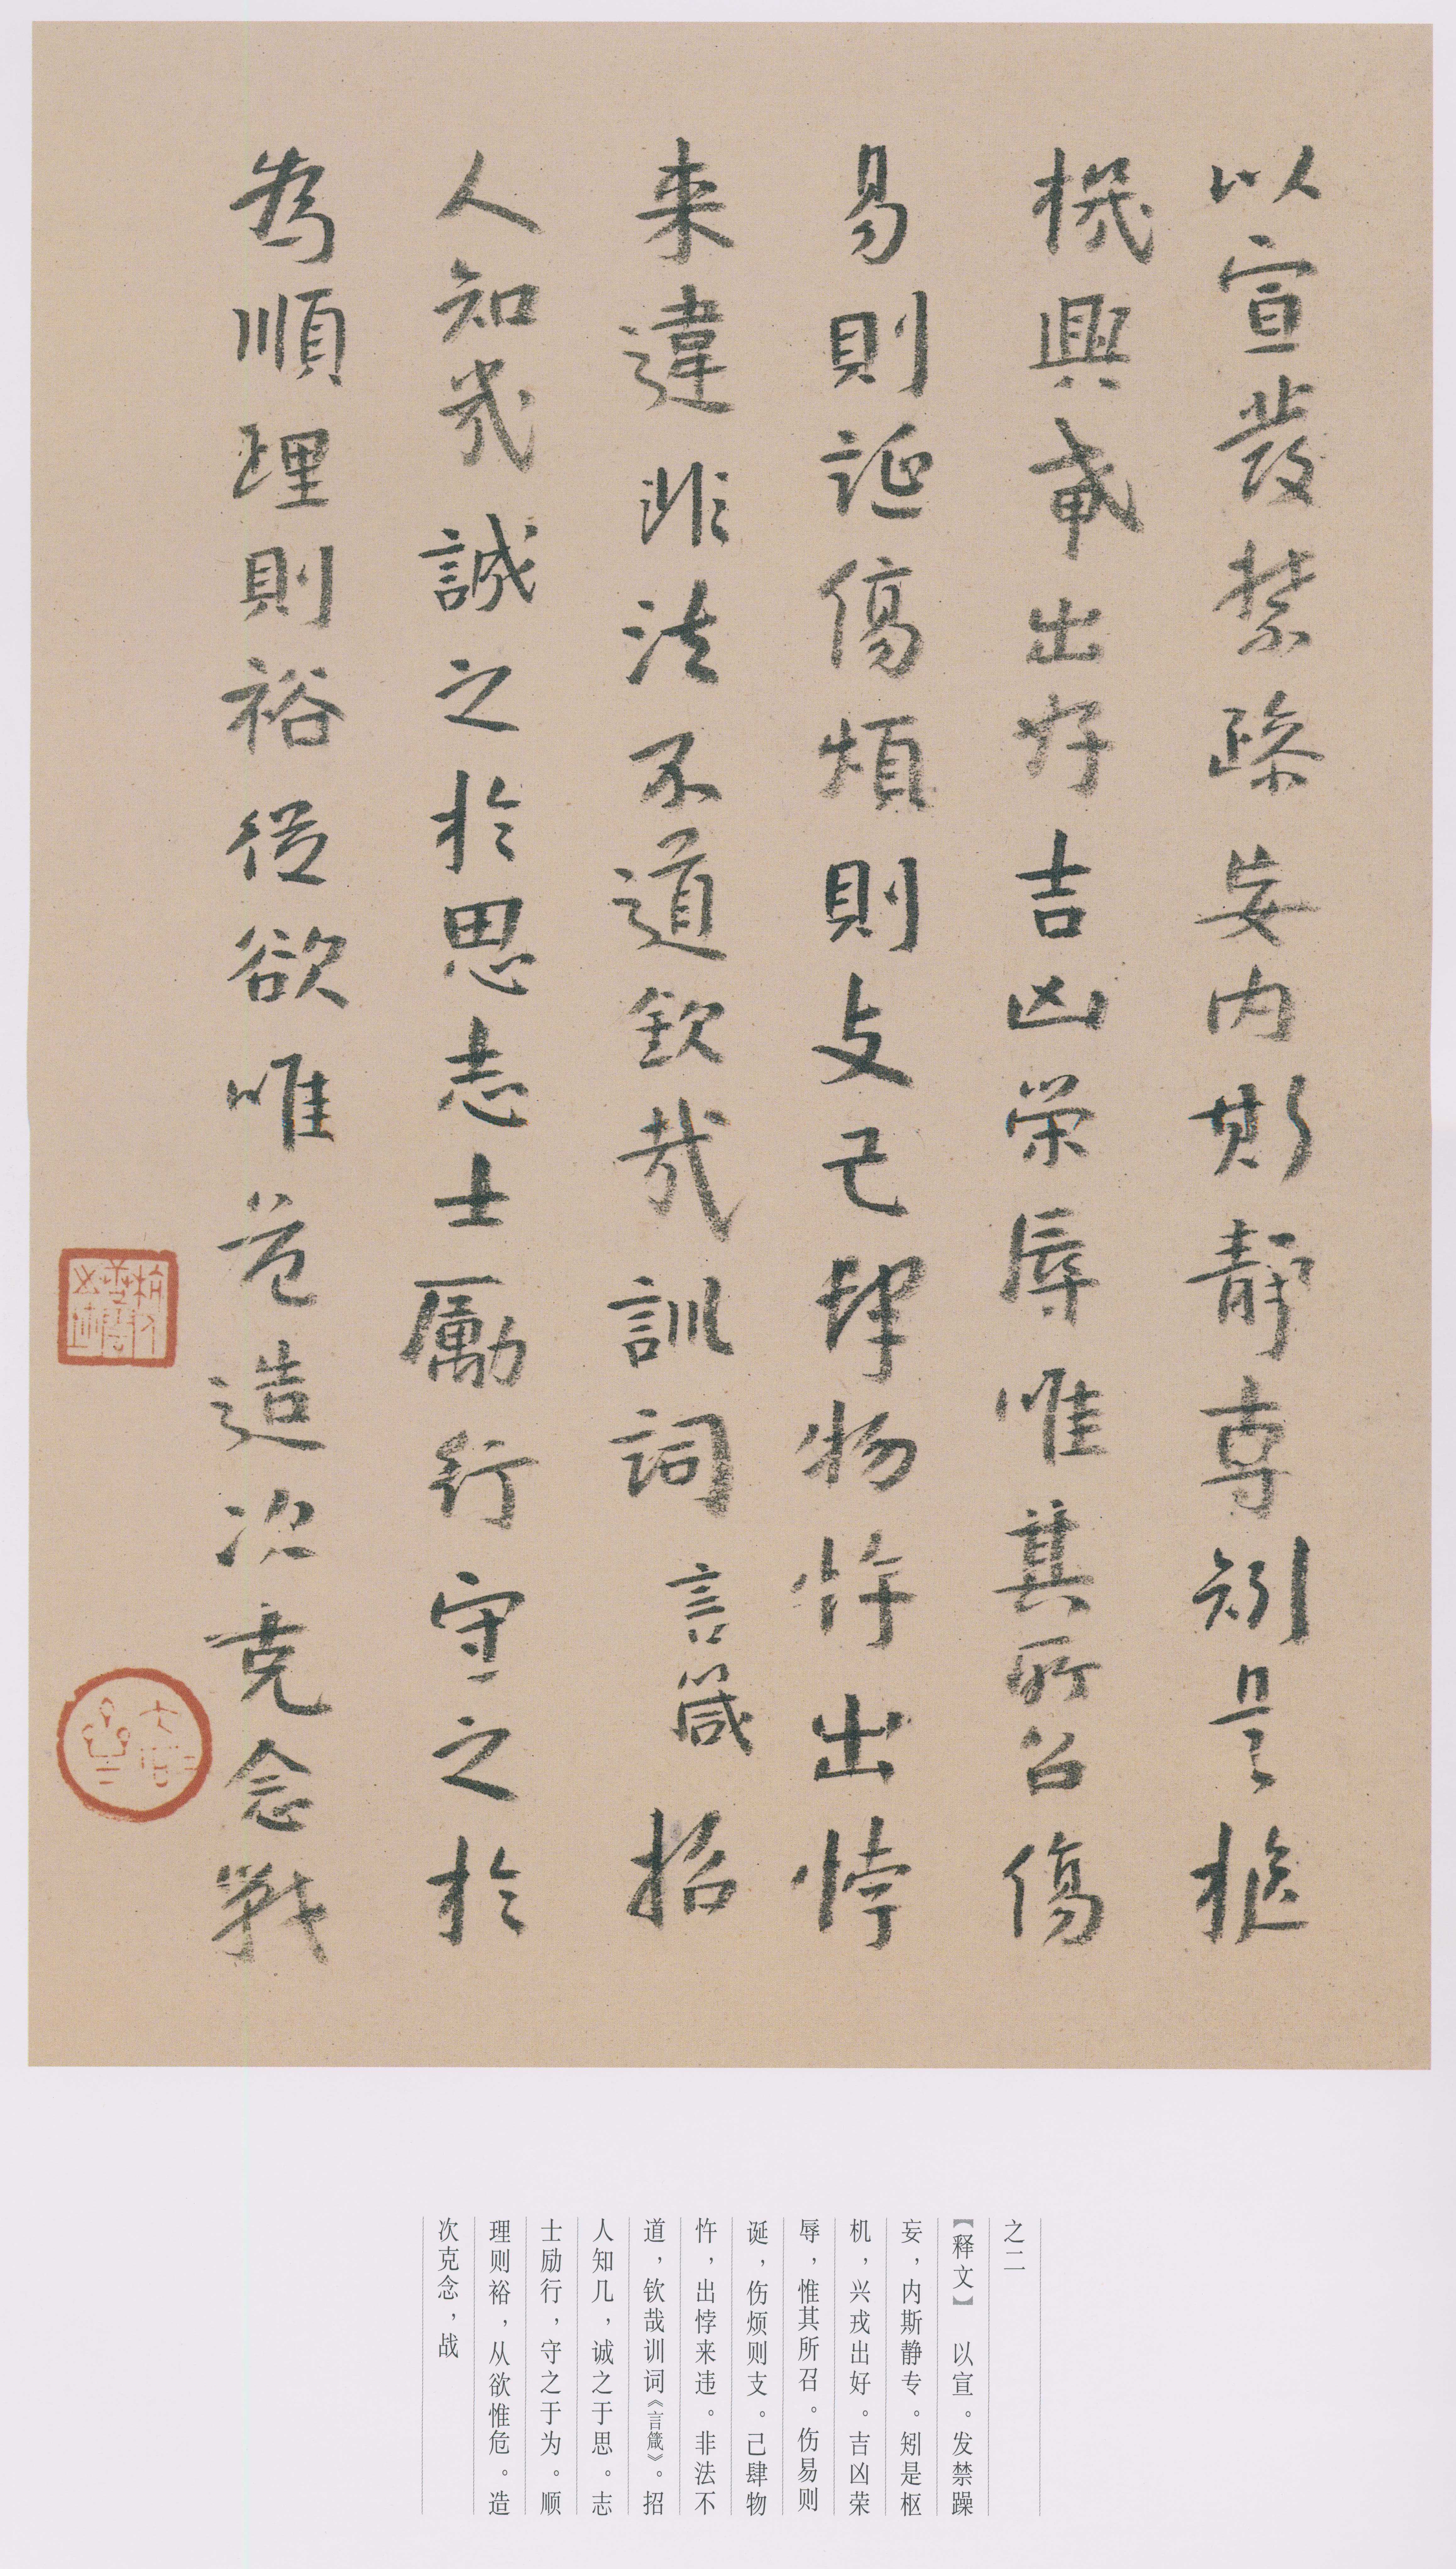 以宣發禁躁妄内斯靜專矧是樞
機興戎出好吉凶榮辱唯其所召傷
易則誕傷煩則支己肆物忤出悖
来違非法不道欽哉訓詞言箴招
人知幾誠之於思志士勵行守之於
為順理則裕從欲唯危造次克念戰
之二
【释文】 以宣。发禁躁
妄，内斯静专。矧是枢
机，兴戎出好。吉凶荣
辱，惟其所召。伤易则
诞，伤烦则支。己肆物
忤，出悖来违。非法不
道，钦哉训词《言箴》。招
人知几，诚之于思。志
士励行，守之于为。顺
理则裕，从欲惟危。造
次克念，战